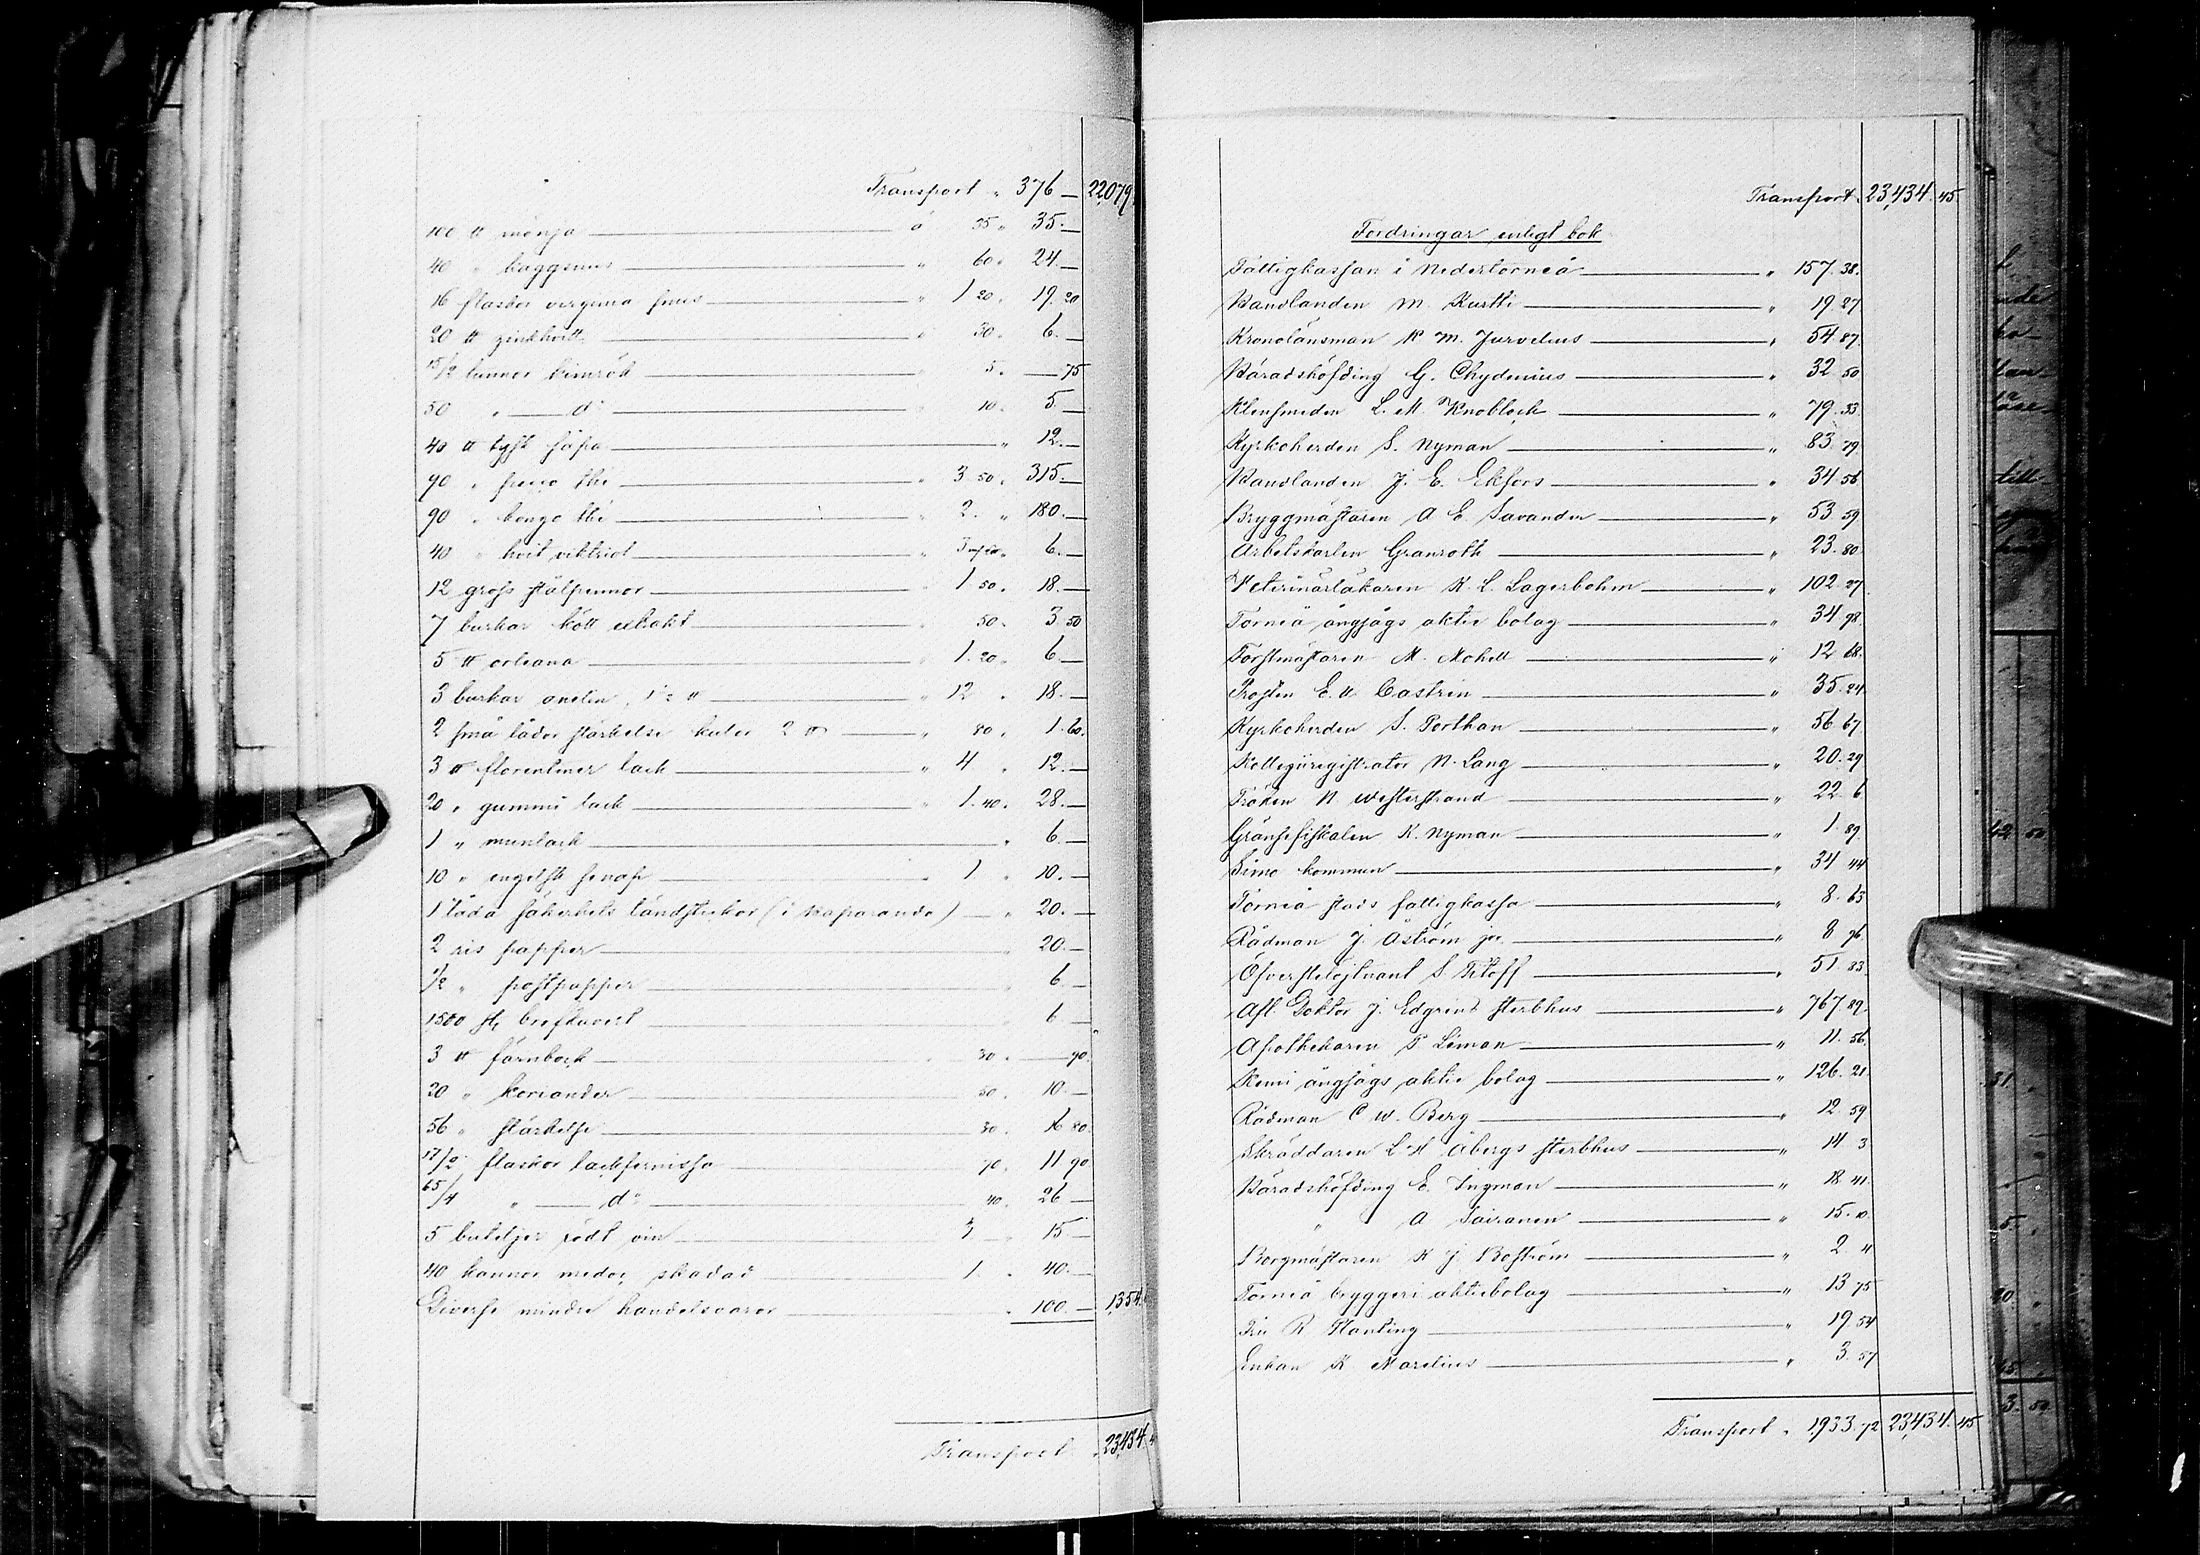 Transport " 376 — 22,079
100 ℔ mönja — à 35 " 35.—
40 " kaggsnus — " 60 " 24.—
16 flaskor virginia snus — " 1 20 " 19. 20
20 ℔ zinkhvitt — " 30 " 6.—
15/2 tunnor kimrök — " 5. — 75
50 " — d:o — " 10. 5.—
40 ℔ tysk såpa — " 12.—
90 " the — " 3. 50 " 315.—
90 " congo the — " 2. " 180.—
40 " hvit viktriol — " 6.—
12 gross stålpennor — " 1 50 " 18.—
7 burkar kött extrakt — " 50 " 3 50
5 ℔ orleana — " 1. 20 " 6.—
3 burkar 1/2 ℔ — " 12 " 18.—
2 små lådor stärkelse kulor 2 ℔ — " 80 " 1. 60.
3 ℔ florentiner lack — " 4 " 12.—
20 " gummi lack — " 1. 40 " 28.—
1 " munlack — " 6.—
10 " engelsk senap — " 1 " 10.—
1 låda säkerhets tändstickor (i Haparanda) — " 20.—
2 ris papper — 20.—
1/2 " postpapper — " 6.—
1,500 st. brefkuvert — " 6.—
3 ℔ färnbock — 30 " — 90.
20 " koriander — 50 " 10.—
56 " stärkelse — 30 " 16 80.
17/2 flaskor lackfernissa — 70 " 11 90
65/4 " — d:o — 40 " 26 —
5 buteljer rödt vin — 3 " 15.—
40 kannor skadad — 1. " 40.—
Diverse mindre handelsvaror — " 100.— 1,354.
Transport " 23,434. 4
Transport " 23,434. 45
Fordringar enligt bok
Fattigkassan i Nedertorneå — " 157. 38.
Handlanden M. Kurtti — " 19. 27
Kronolänsman K. M. Jurvelius — " 54. 87.
Häradshöfding G. Chydenius — " 32 50
Klensmeden L. M. Knobloch — " 79. 33.
Kyrkoherden S. Nyman — " 83. 79
Handlanden J. E. Ekfors — " 34 56
Bryggmästaren A. E. Savander — " 53 59
Arbetskarlen Granroth — " 23. 80.
Veterinärläkaren K. L. Lagerbohm — " 102. 27.
Torneå ångsågs aktie bolag — " 34. 98.
Forstmästaren A. Mohell — " 12 68.
Prosten E. A. Castrén — " 35. 24
Kyrkoherden S. Porthan — " 56. 67.
Kollegiiregistrator N. Lang — " 20. 29
Fröken N. Westerstrand — " 22. 6
Gränsefiskalen K. Nyman — " 1. 89.
Simo kommun — " 34 44
Torneå stads fattigkassa — " 8. 63
Rådman J. Åström jor — " 8 76
Öfverstelöjtnant S. Titoff — " 51. 83.
Afl. Doktor J. Edgrens sterbhus — " 767. 89.
Apothekaren P. Liman — " 11. 56.
Kemi ångsågs aktie bolag — " 126. 21.
Rådman C. W. Berg — " 12. 59
Skräddaren L. A. Åbergs sterbhus — " 14 3
Häradshöfding E. Ingman — " 18 41.
" A. Sairanen — " 15. 10.
Borgmästaren K. J. Boström — " 2 "
Torneå bryggeri aktiebolag — " 13 75
Fru R. Planting — " 19. 54
Enkan K. Marelius — " 3. 57
Transport " 1,933. 72 23,434. 45